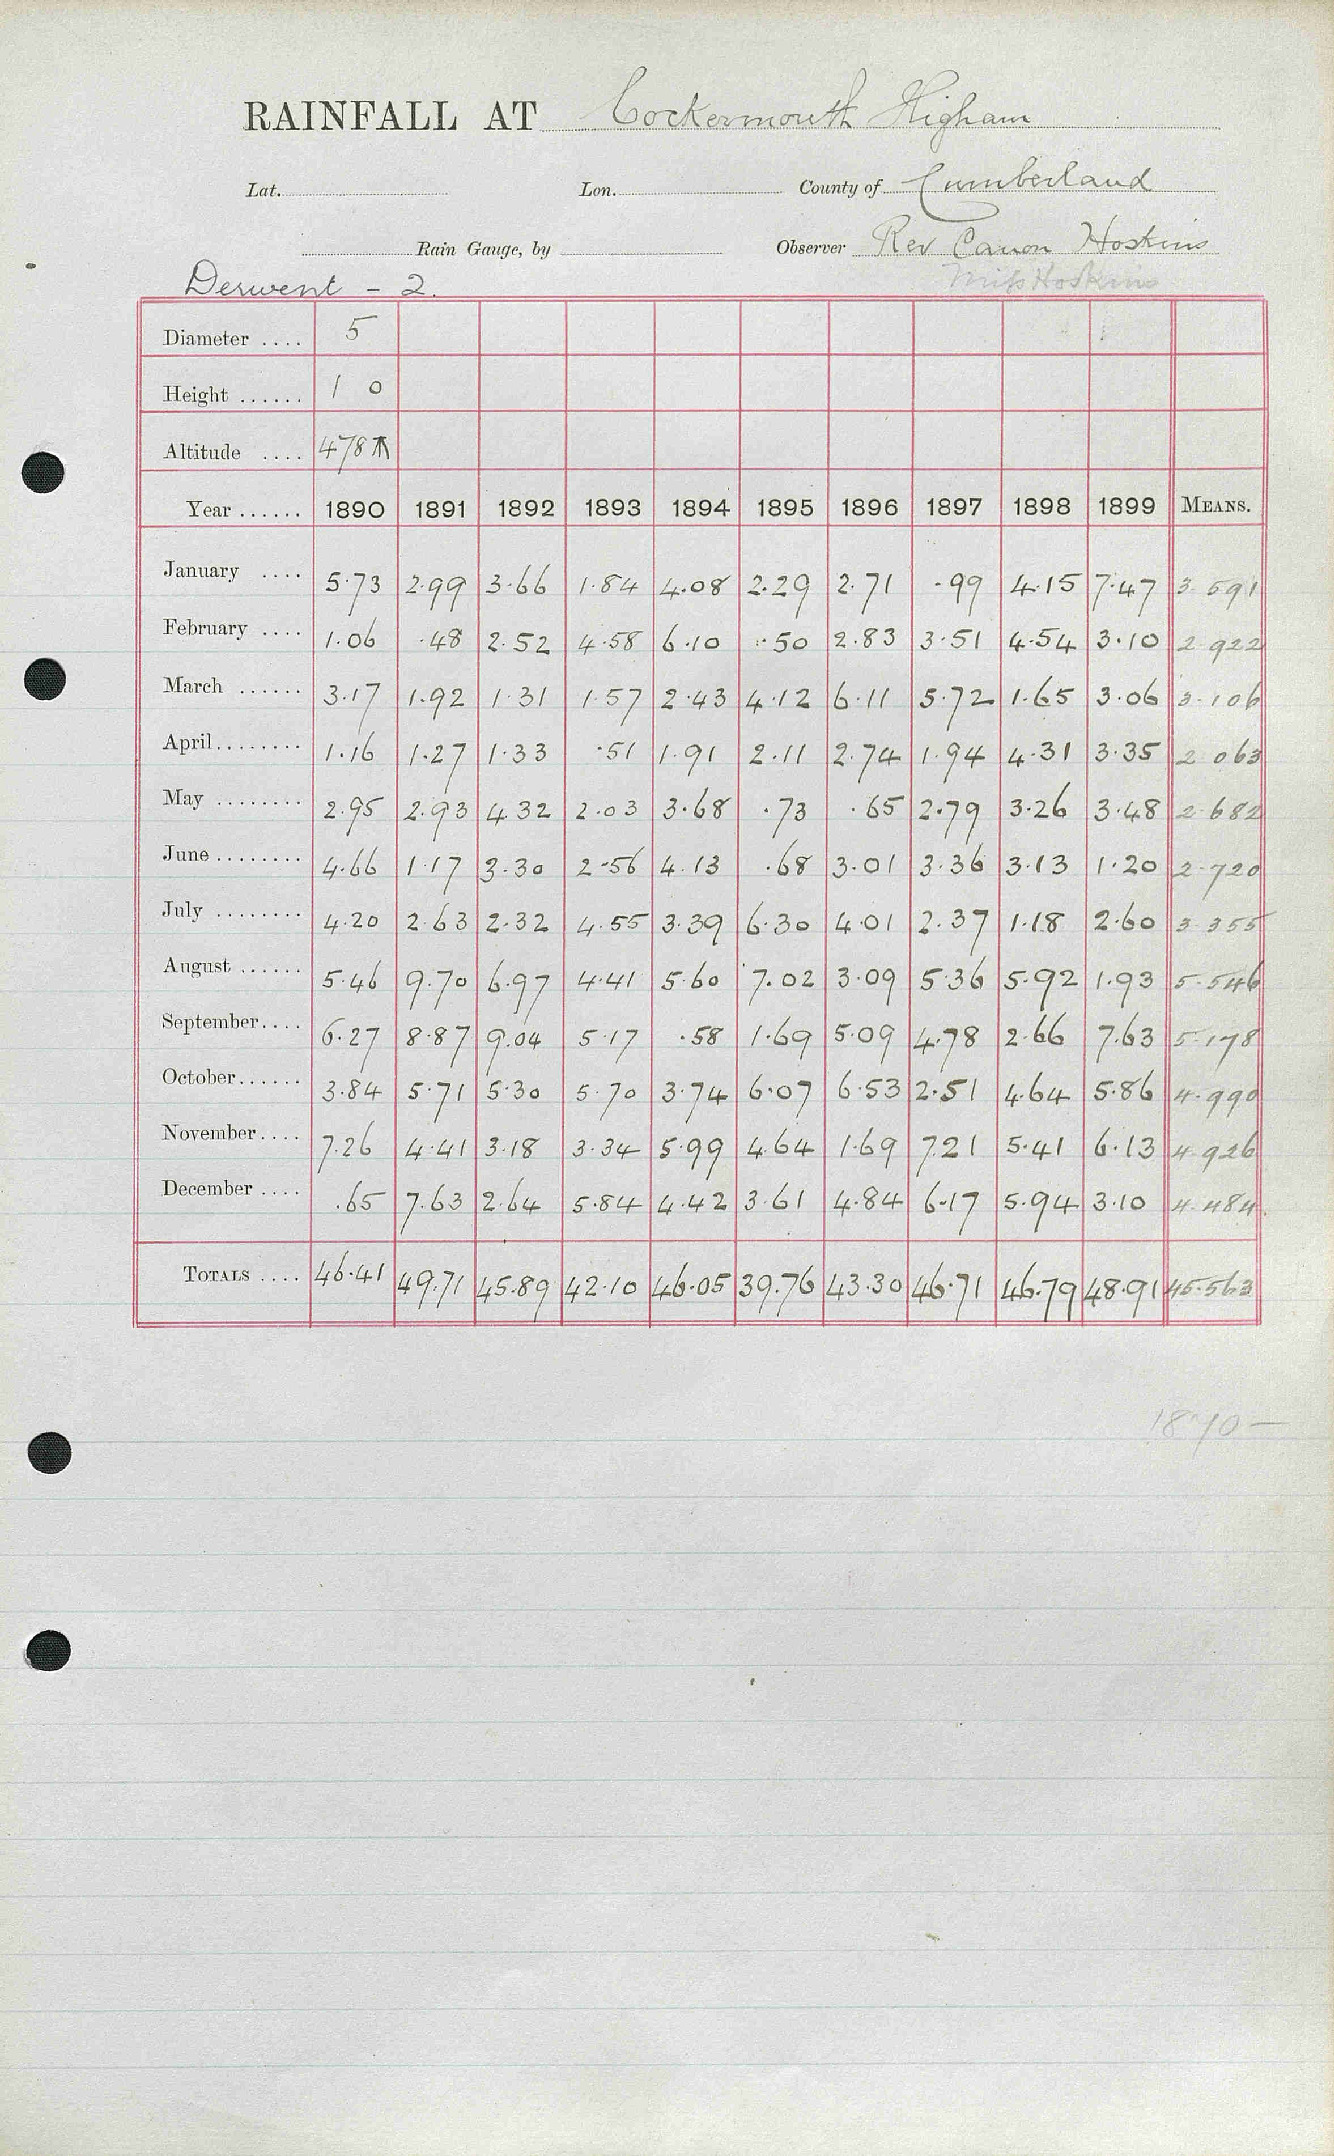 RAINFALL AT Cockermouth Higham
Lat. Lon. County of Cumberland
Rain Gauge, by Observer Rev Canon Hoskins
Derwent - 2. Miss Hoskins
Diameter .... 5
Height ...... 1 0
Altitude .... 478
Year ...... 1890 1891 1892 1893 1894 1895 1896 1897 1898 1899 MEANS.
January .... 5.73 2.99 3.66 1.84 4.08 2.29 2.71 .99 4.15 7.47 3.591
February .... 1.06 .48 2.52 4.58 6.10 .50 2.83 3.51 4.54 3.10 2.922
March ...... 3.17 1.92 1.31 1.57 2.43 4.12 6.11 5.72 1.65 3.06 3.106
April........ 1.16 1.27 1.33 .51 1.91 2.11 2.74 1.94 4.31 3.35 2.063
May ........ 2.95 2.93 4.32 2.03 3.68 .73 .65 2.79 3.26 3.48 2.682
June........ 4.66 1.17 3.30 2.56 4.13 .68 3.01 3.36 3.13 1.20 2.720
July ........ 4.20 2.63 2.32 4.55 3.39 6.30 4.01 2.37 1.18 2.60 3.355
August ...... 5.46 9.70 6.97 4.41 5.60 7.02 3.09 5.36 5.92 1.93 5.546
September.... 6.27 8.87 9.04 5.17 .58 1.69 5.09 4.78 2.66 7.63 5.178
October...... 3.84 5.71 5.30 5.70 3.74 6.07 6.53 2.51 4.64 5.86 4.990
November.... 7.26 4.41 3.18 3.34 5.99 4.64 1.69 7.21 5.41 6.13 4.926
December .... .65 7.63 2.64 5.84 4.42 3.61 4.84 6.17 5.94 3.10 4.484
TOTALS .... 46.41 49.71 45.89 42.10 46.05 39.76 43.30 46.71 46.79 48.91 45.563
1870 —